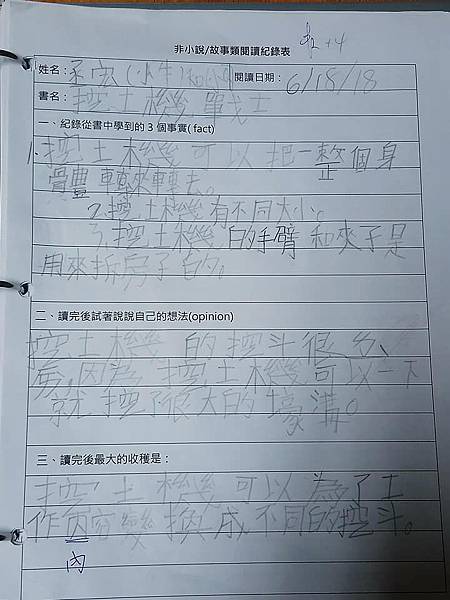 +4
非小說/故事類閱讀紀錄表
姓名：丞宏(小牛) 閱讀日期：6/18/18
書名：挖土機 單戈士
一、紀錄從書中學到的 3 個事實( fact)
1.挖土機可以把一整個身
體轉來轉去。
2.挖土機有不同大小。
3.挖土機的手臂和夾子是
用來拆房子的。
二、讀完後試著說說自己的想法(opinion)
挖土機的挖斗很
害,因為挖土機可以一下
就挖了很大的壕溝。
三、讀完後最大的收穫是：
挖土機可以為了工
作內容變換成不同的挖斗。
內